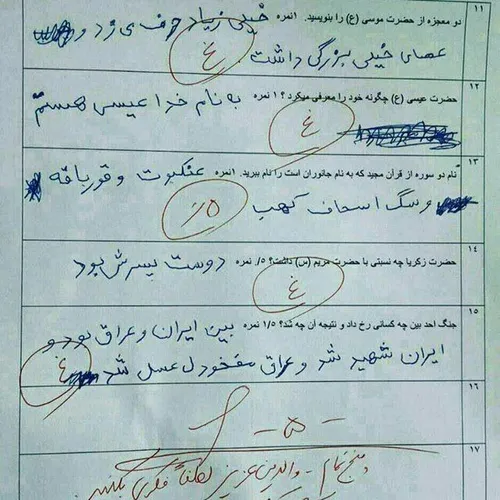 ۱۱
دو معجزه از حضرت موسی (ع) را بنویسید. ۱نمره خیلی زیاد حرف می زد و
عصای خیلی بزرگی داشت.
غ
۱۲
حضرت عیسی (ع) چگونه خود را معرفی میکرد؟ ۱ نمره به نام خدا عیسی هستم
غ
۱۳
نام دو سوره از قرآن مجید که به نام جانوران است را نام ببرید. ۱نمره عنکبوت و قورباقه
و سگ اسحاف کهب
۵/.
۱۴
حضرت زکریا چه نسبتی با حضرت مریم (س) داشت؟ ۵/. نمره دوست پسرش بود
غ
۱۵
جنگ احد بین چه کسانی رخ داد و نتیجه آن چه شد؟ ۱/۵ نمره بین ایران و عراق بود و
ایران شهید شد و عراق مفخودل عسل شد
غ
۱۶
-۵-
۱۷
پنج تمام - والدین عزیز لطفاً فکری بکنید.